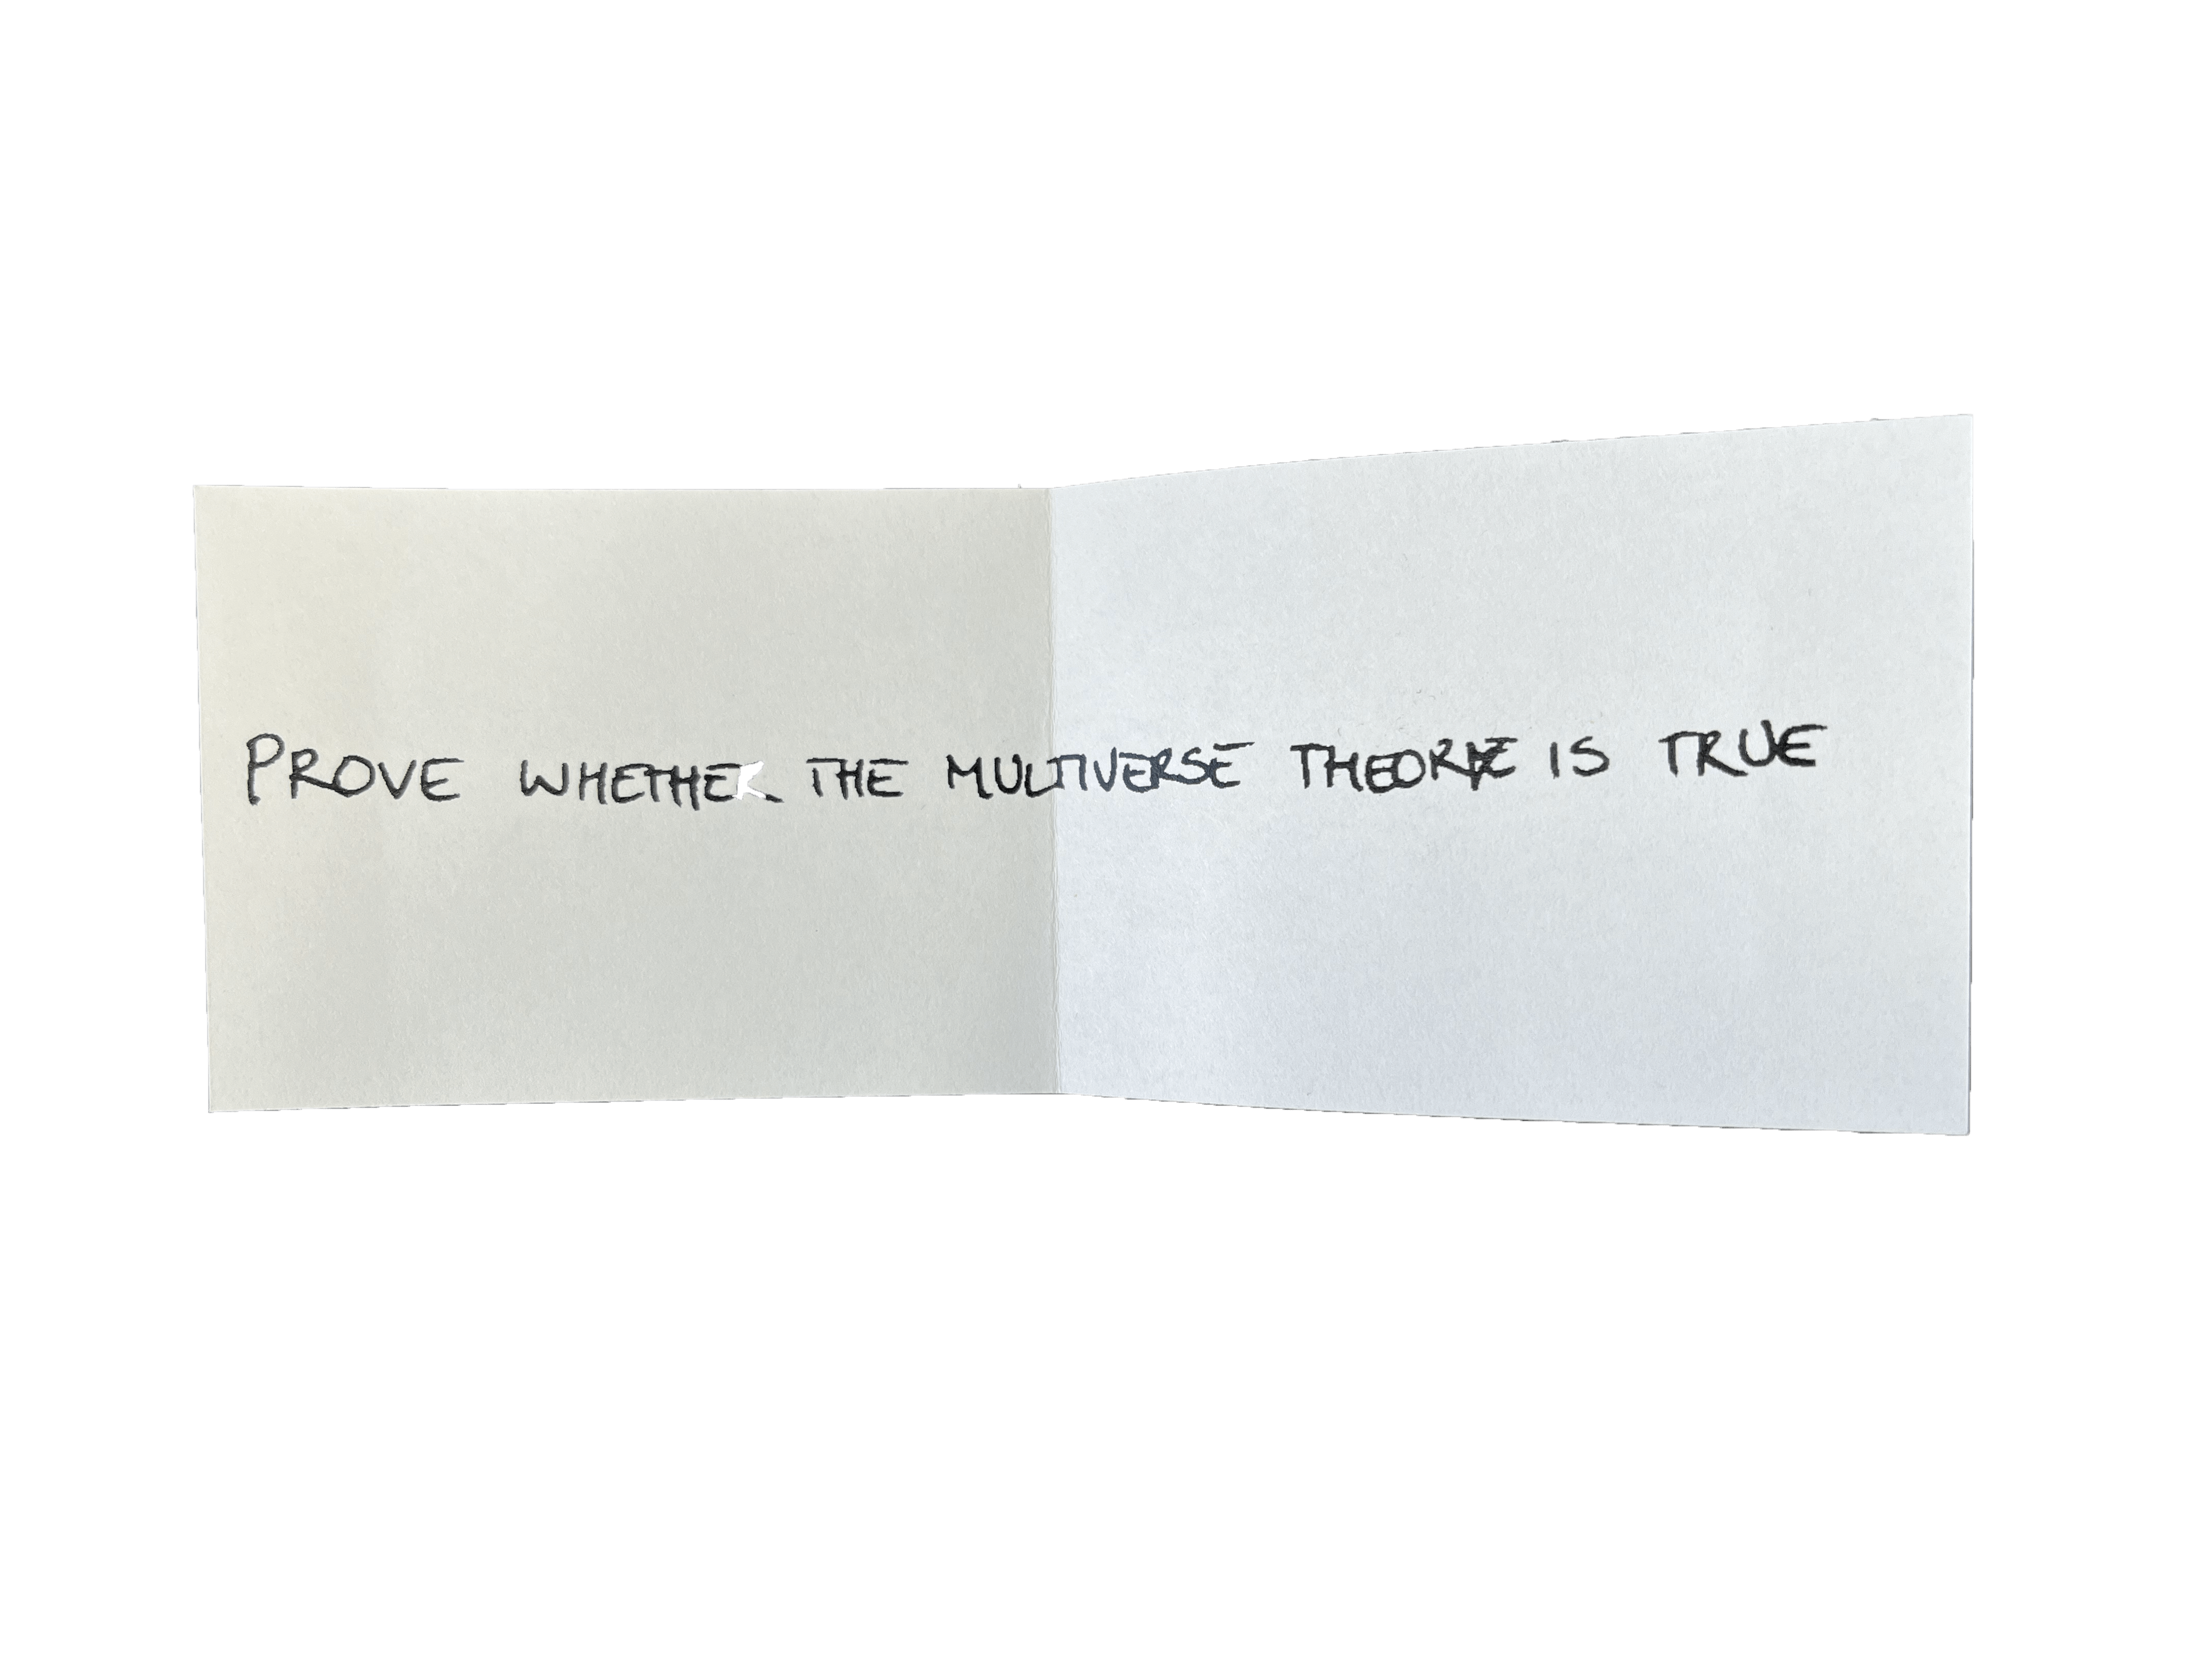 PROVE WHETHER THE MULTIVERSE THEORIE IS TRUE